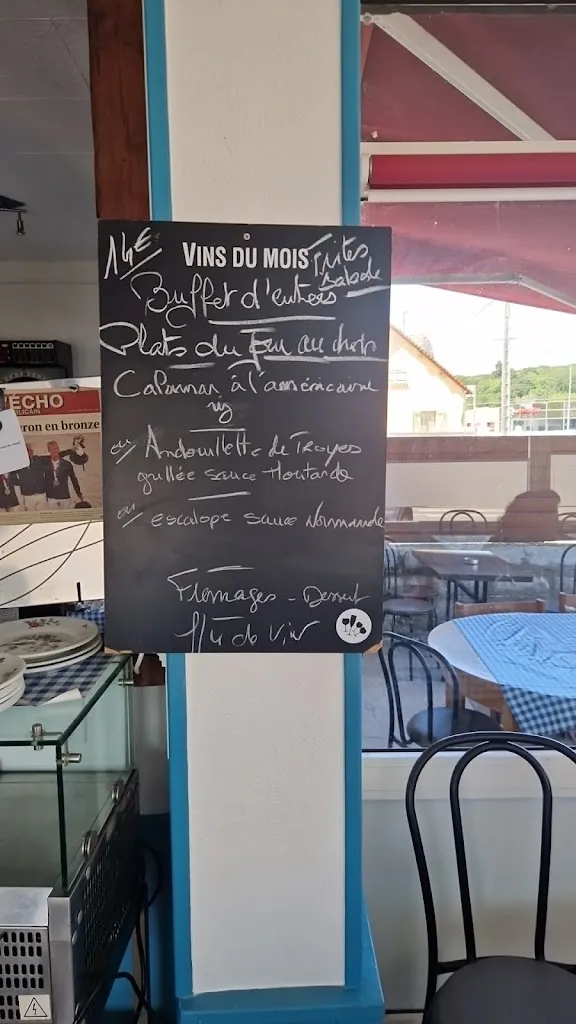 14€
VINS DU MOIS
Frites
salade
Buffet d'entrées
Plats du jour au choix
Calamar à l'américaine
riz
ou Andouillette de Troyes
grillée sauce Moutarde
ou escalope sauce Normande
Fromages - Dessert
1/4 de Vin
ÉCHO
RÉPUBLICAIN
eron en bronze